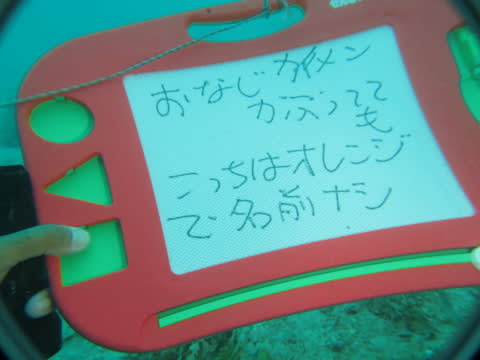 おなじカイメン
かぶってて
も
こっちはオレンジ
で名前ナシ